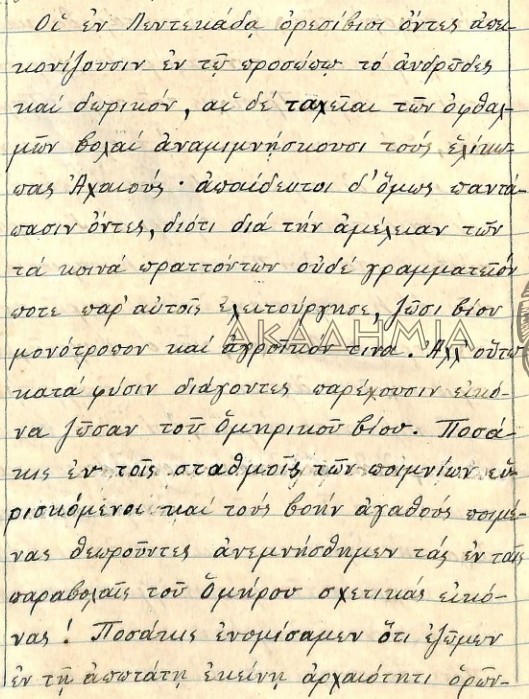 Οἱ ἐν Πεντεκάδᾳ ὀρεσίβιοι ὄντες ἀπει-
κονίζουσιν ἐν τῷ προσώπῳ τό ἀνδρῶδες
καί δωρικόν, αἱ δέ ταχεῖαι τῶν ὀφθαλ-
μῶν βολαί ἀναμιμνήσκουσι τούς ἑλίκω-
πας Ἀχαιούς· ἀπαίδευτοι δ' ὅμως παντά-
πασιν ὄντες, διότι διά τήν ἀμέλειαν τῶν
τά κοινά πραττόντων οὐδέ γραμματεῖόν
ποτε παρ' αὐτοῖς ἐλειτούργησε, ζῶσι βίον
μονότροπον καί ἀγροῖκον τινα. Ἀλλ' οὕτω
κατά φύσιν διάγοντες παρέχουσιν εἰκό-
να ζῶσαν τοῦ Ὁμηρικοῦ βίου. Ποσά-
κις ἐν τοῖς σταθμοῖς τῶν ποιμνίων εὑ-
ρισκόμενοι καί τούς βοήν ἀγαθούς ποιμέ-
νας θεωροῦντες ἀνεμνήσθημεν τάς ἐν ταῖς
παραβολαῖς τοῦ Ὁμήρου σχετικάς εἰκό-
νας! Ποσάκις ἐνομίσαμεν ὅτι ἐζῶμεν
ἐν τῇ ἀπωτάτῃ ἐκείνῃ ἀρχαιότητι ὁρῶν-
ΑΚΑΔΗΜΙΑ